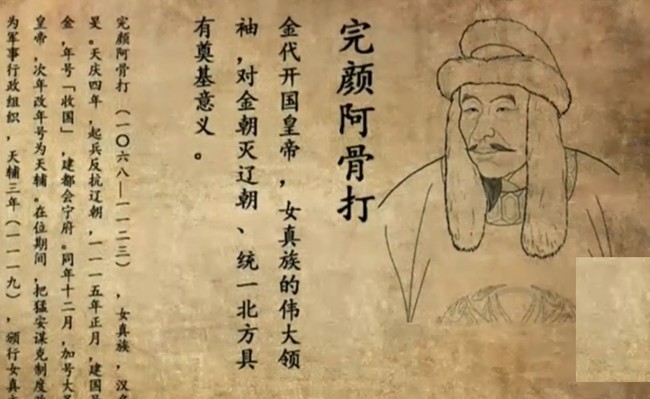 完颜阿骨打
金代开国皇帝，女真族的伟大领
袖，对金朝灭辽朝、统一北方具
有奠基意义。
完颜阿骨打（一〇六八—一一二三），女真族，汉名
旻。天庆四年，起兵反抗辽朝，一一一五年正月，建国号
金，年号「收国」，建都会宁府。同年十二月，加号大圣
皇帝，次年改年号为天辅。在位期间，把猛安谋克制度
为军事行政组织，天辅三年（一一一九），颁行女真